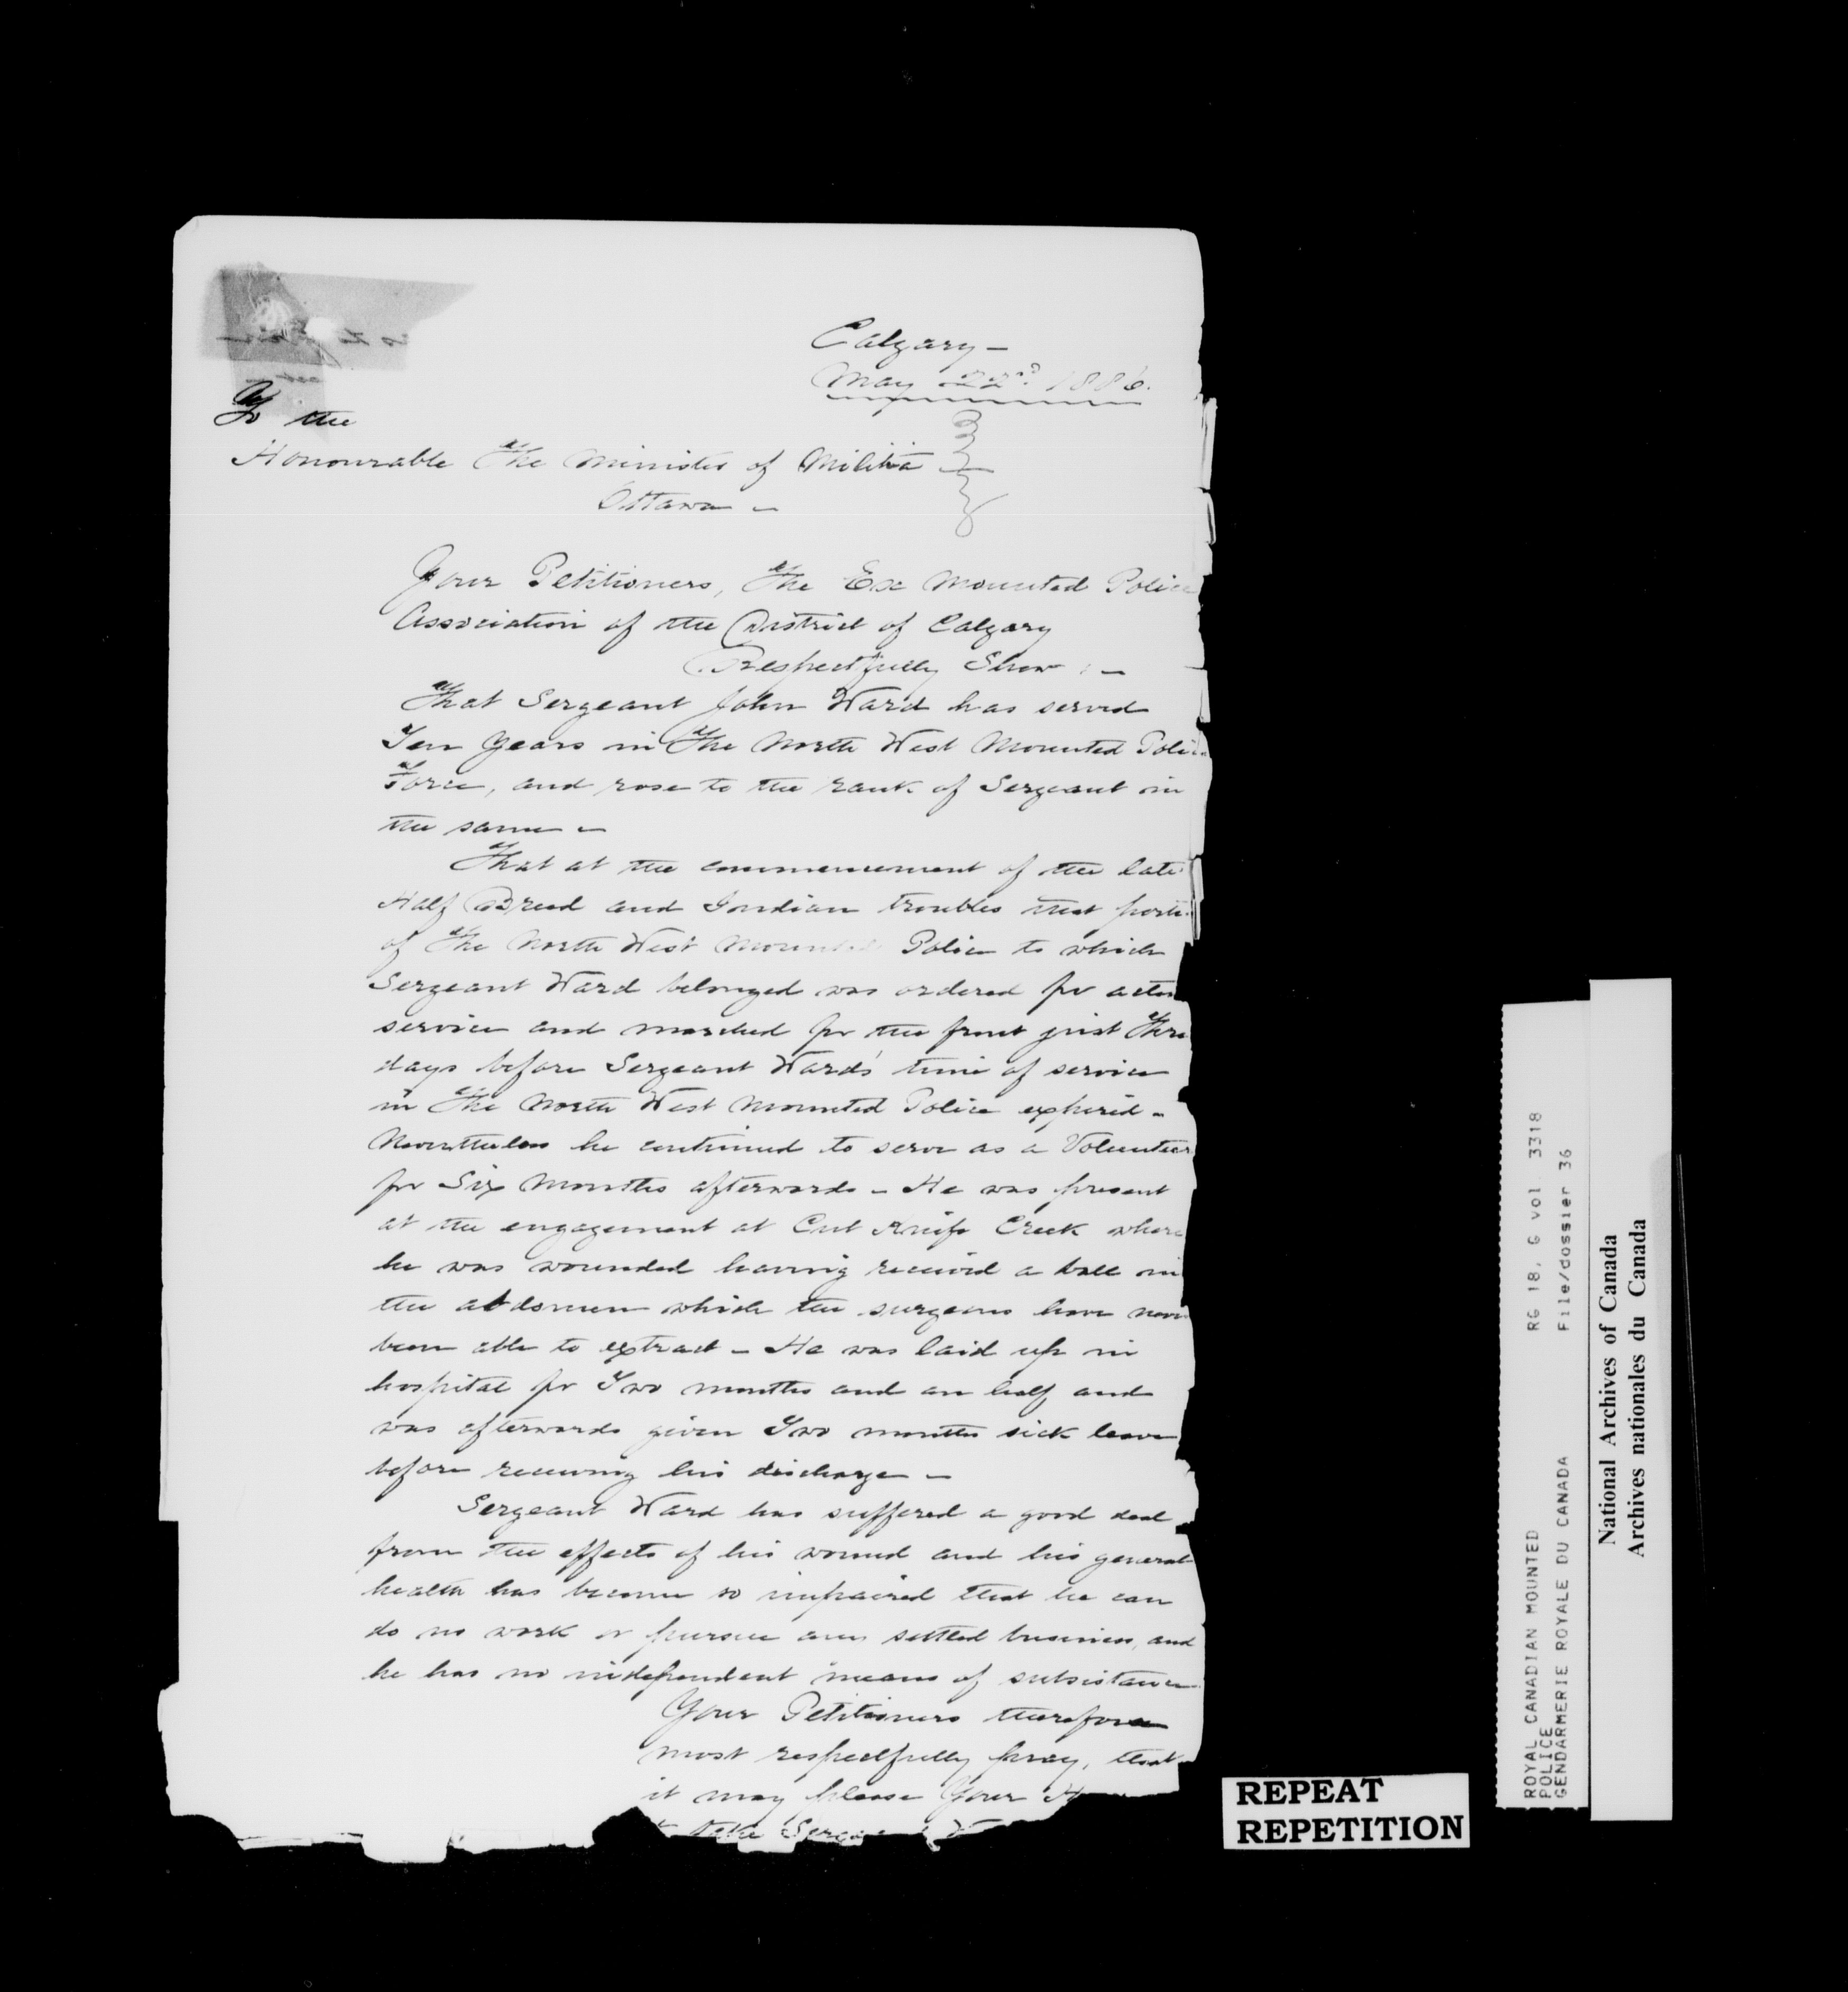 Calgary -
May 22nd. 1886.
To the
Honourable The Minister of Militia
Ottawa -
Your Petitioners, The Ex Mounted Police
Association of the District of Calgary
Respectfully Show : -
That Sergeant John Ward has served
Ten Years in The North West Mounted Police
Force, and rose to the rank of Sergeant in
the same -
That at the commencement of the late
Half Breed and Indian troubles that porti
of The North West Mounted Police to which
Sergeant Ward belonged was ordered for active
service and marched for the front just Three
days before Sergeant Ward's time of service
in The North West Mounted Police expired -
Nevertheless he continued to serve as a Volunteer
for Six Months afterwards - He was present
at the engagement at Cut Knife Creek where
he was wounded having received a ball in
the abdomen which the surgeons have never
been able to extract - He was laid up in
hospital for Two months and an half and
was afterwards given Two months sick leave
before receiving his discharge -
Sergeant Ward has suffered a good deal
from the effects of his wound and his general
health has become so impaired that he can
do no work or pursue any settled business, and
he has no independent means of subsistance
Your Petitioners therefore
most respectfully pray, that
it may please Your H
take Sergeant
REPEAT
REPETITION
ROYAL CANADIAN MOUNTED RG 18, G vol 3318
POLICE
GENDARMERIE ROYALE DU CANADA File/dossier 36
National Archives of Canada
Archives nationales du Canada